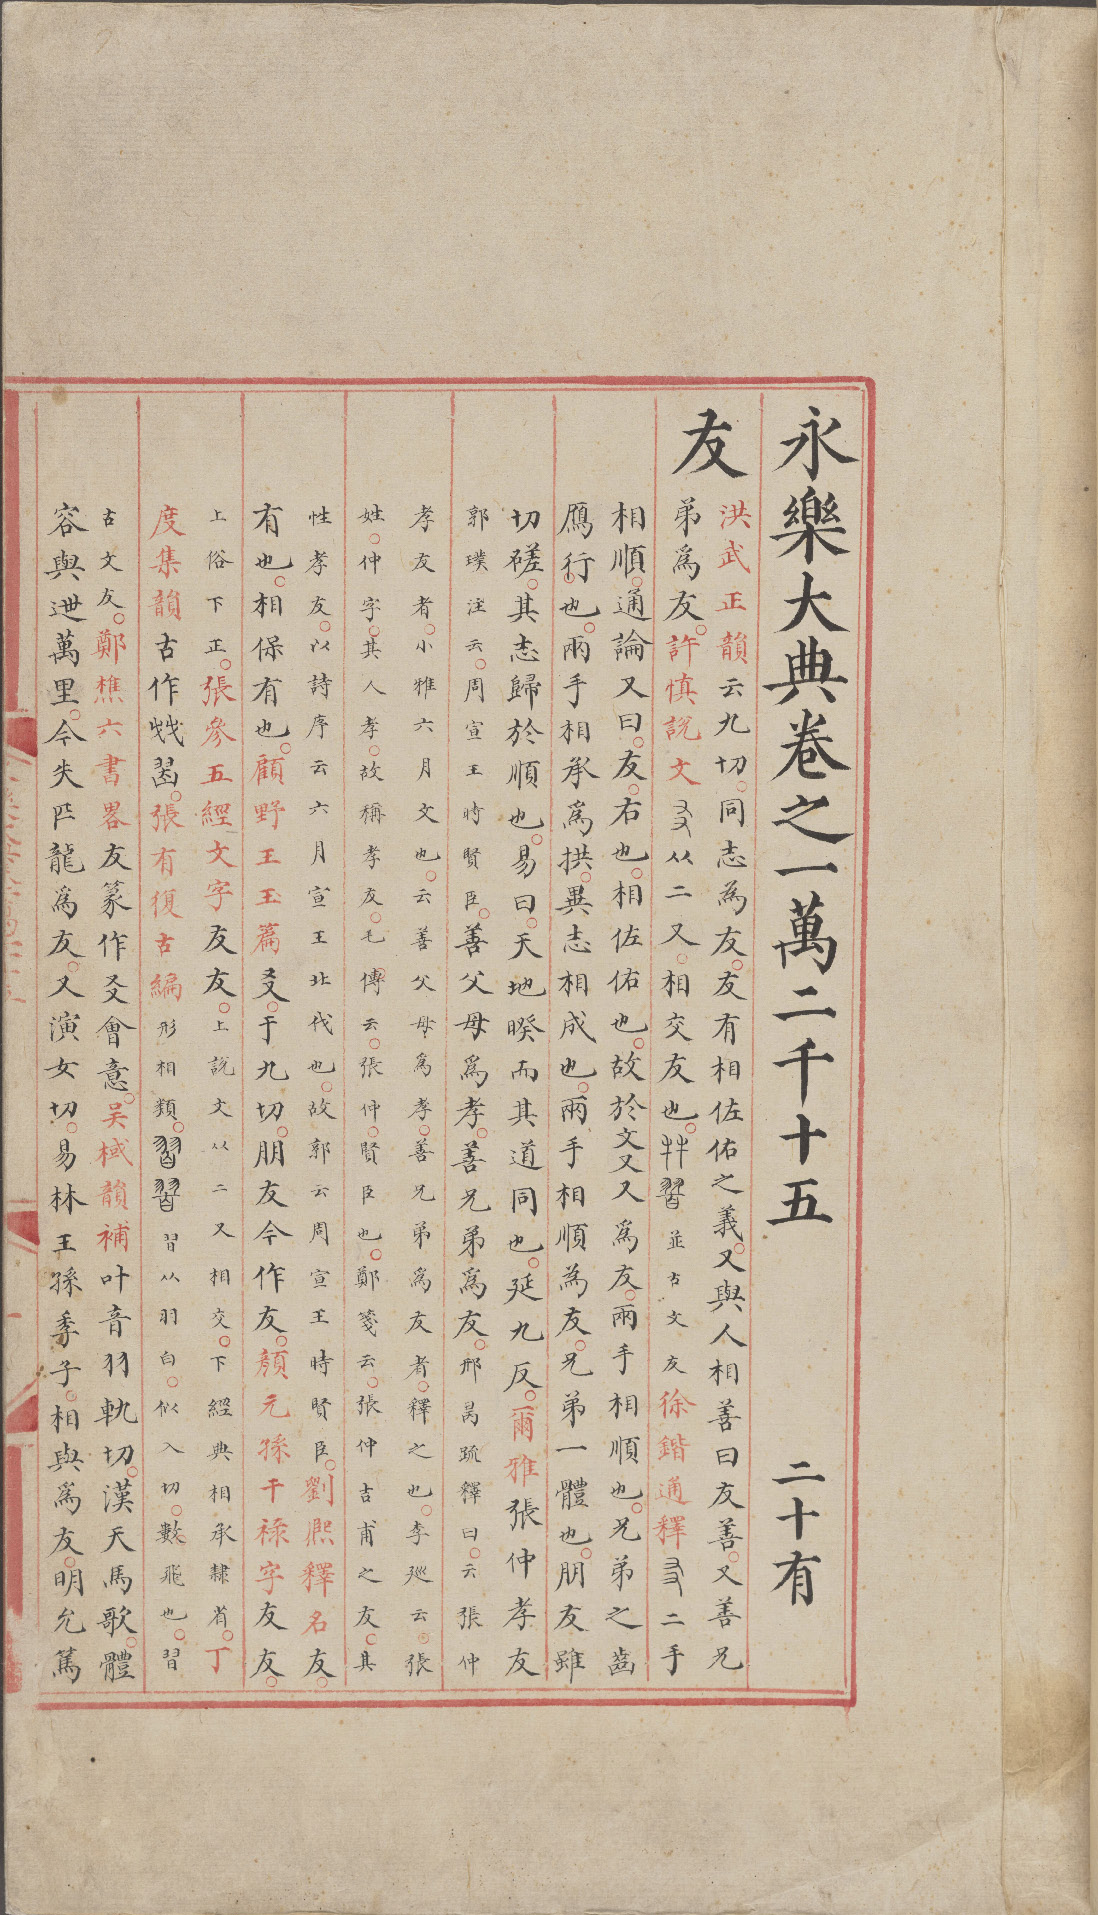 永樂大典卷之一萬二千十五 二十有
友
洪武正韻云九切。同志為友。友有相佐佑之義。又與人相善曰友善。又善兄
弟爲友。許慎說文𠬺从二又。相交友也。𦫹𦐮並古文友徐鍇通釋𠬺二手
相順。通論又曰。友。右也。相佐佑也。故於文又又爲友。兩手相順也。兄弟之齒
鴈行也。兩手相承爲拱。異志相成也。兩手相順為友。兄弟一體也。朋友雖
切磋。其志歸於順也。易曰。天地睽而其道同也。延九反。爾雅張仲孝友
郭璞注云。周宣王時賢臣。善父母爲孝。善兄弟爲友。邢昺疏釋曰。云張仲
孝友者。小雅六月文也。云善父母爲孝。善兄弟爲友者。釋之也。李巡云。張
姓。仲字。其人孝。故稱孝友。毛傳云。張仲。賢臣也。鄭箋云。張仲吉甫之友。其
性孝友。以詩序云六月宣王北伐也。故郭云周宣王時賢臣。劉熈釋名友。
有也。相保有也。顧野王玉篇㕛。于九切。朋友今作友。顏元孫干祿字友友。
上俗下正。張參五經文字友友。上說文从二又相交。下經典相承隸省。丁
度集韻古作𦫹。張有復古編形相類。習習習从羽白。似入切。數飛也。習
古文友。鄭樵六書畧友篆作㕛會意。吳棫韻補叶音羽軌切。漢天馬歌。體
容與迣萬里。今失匹龍爲友。又演女切。易林王孫季子。相與爲友。明允篤